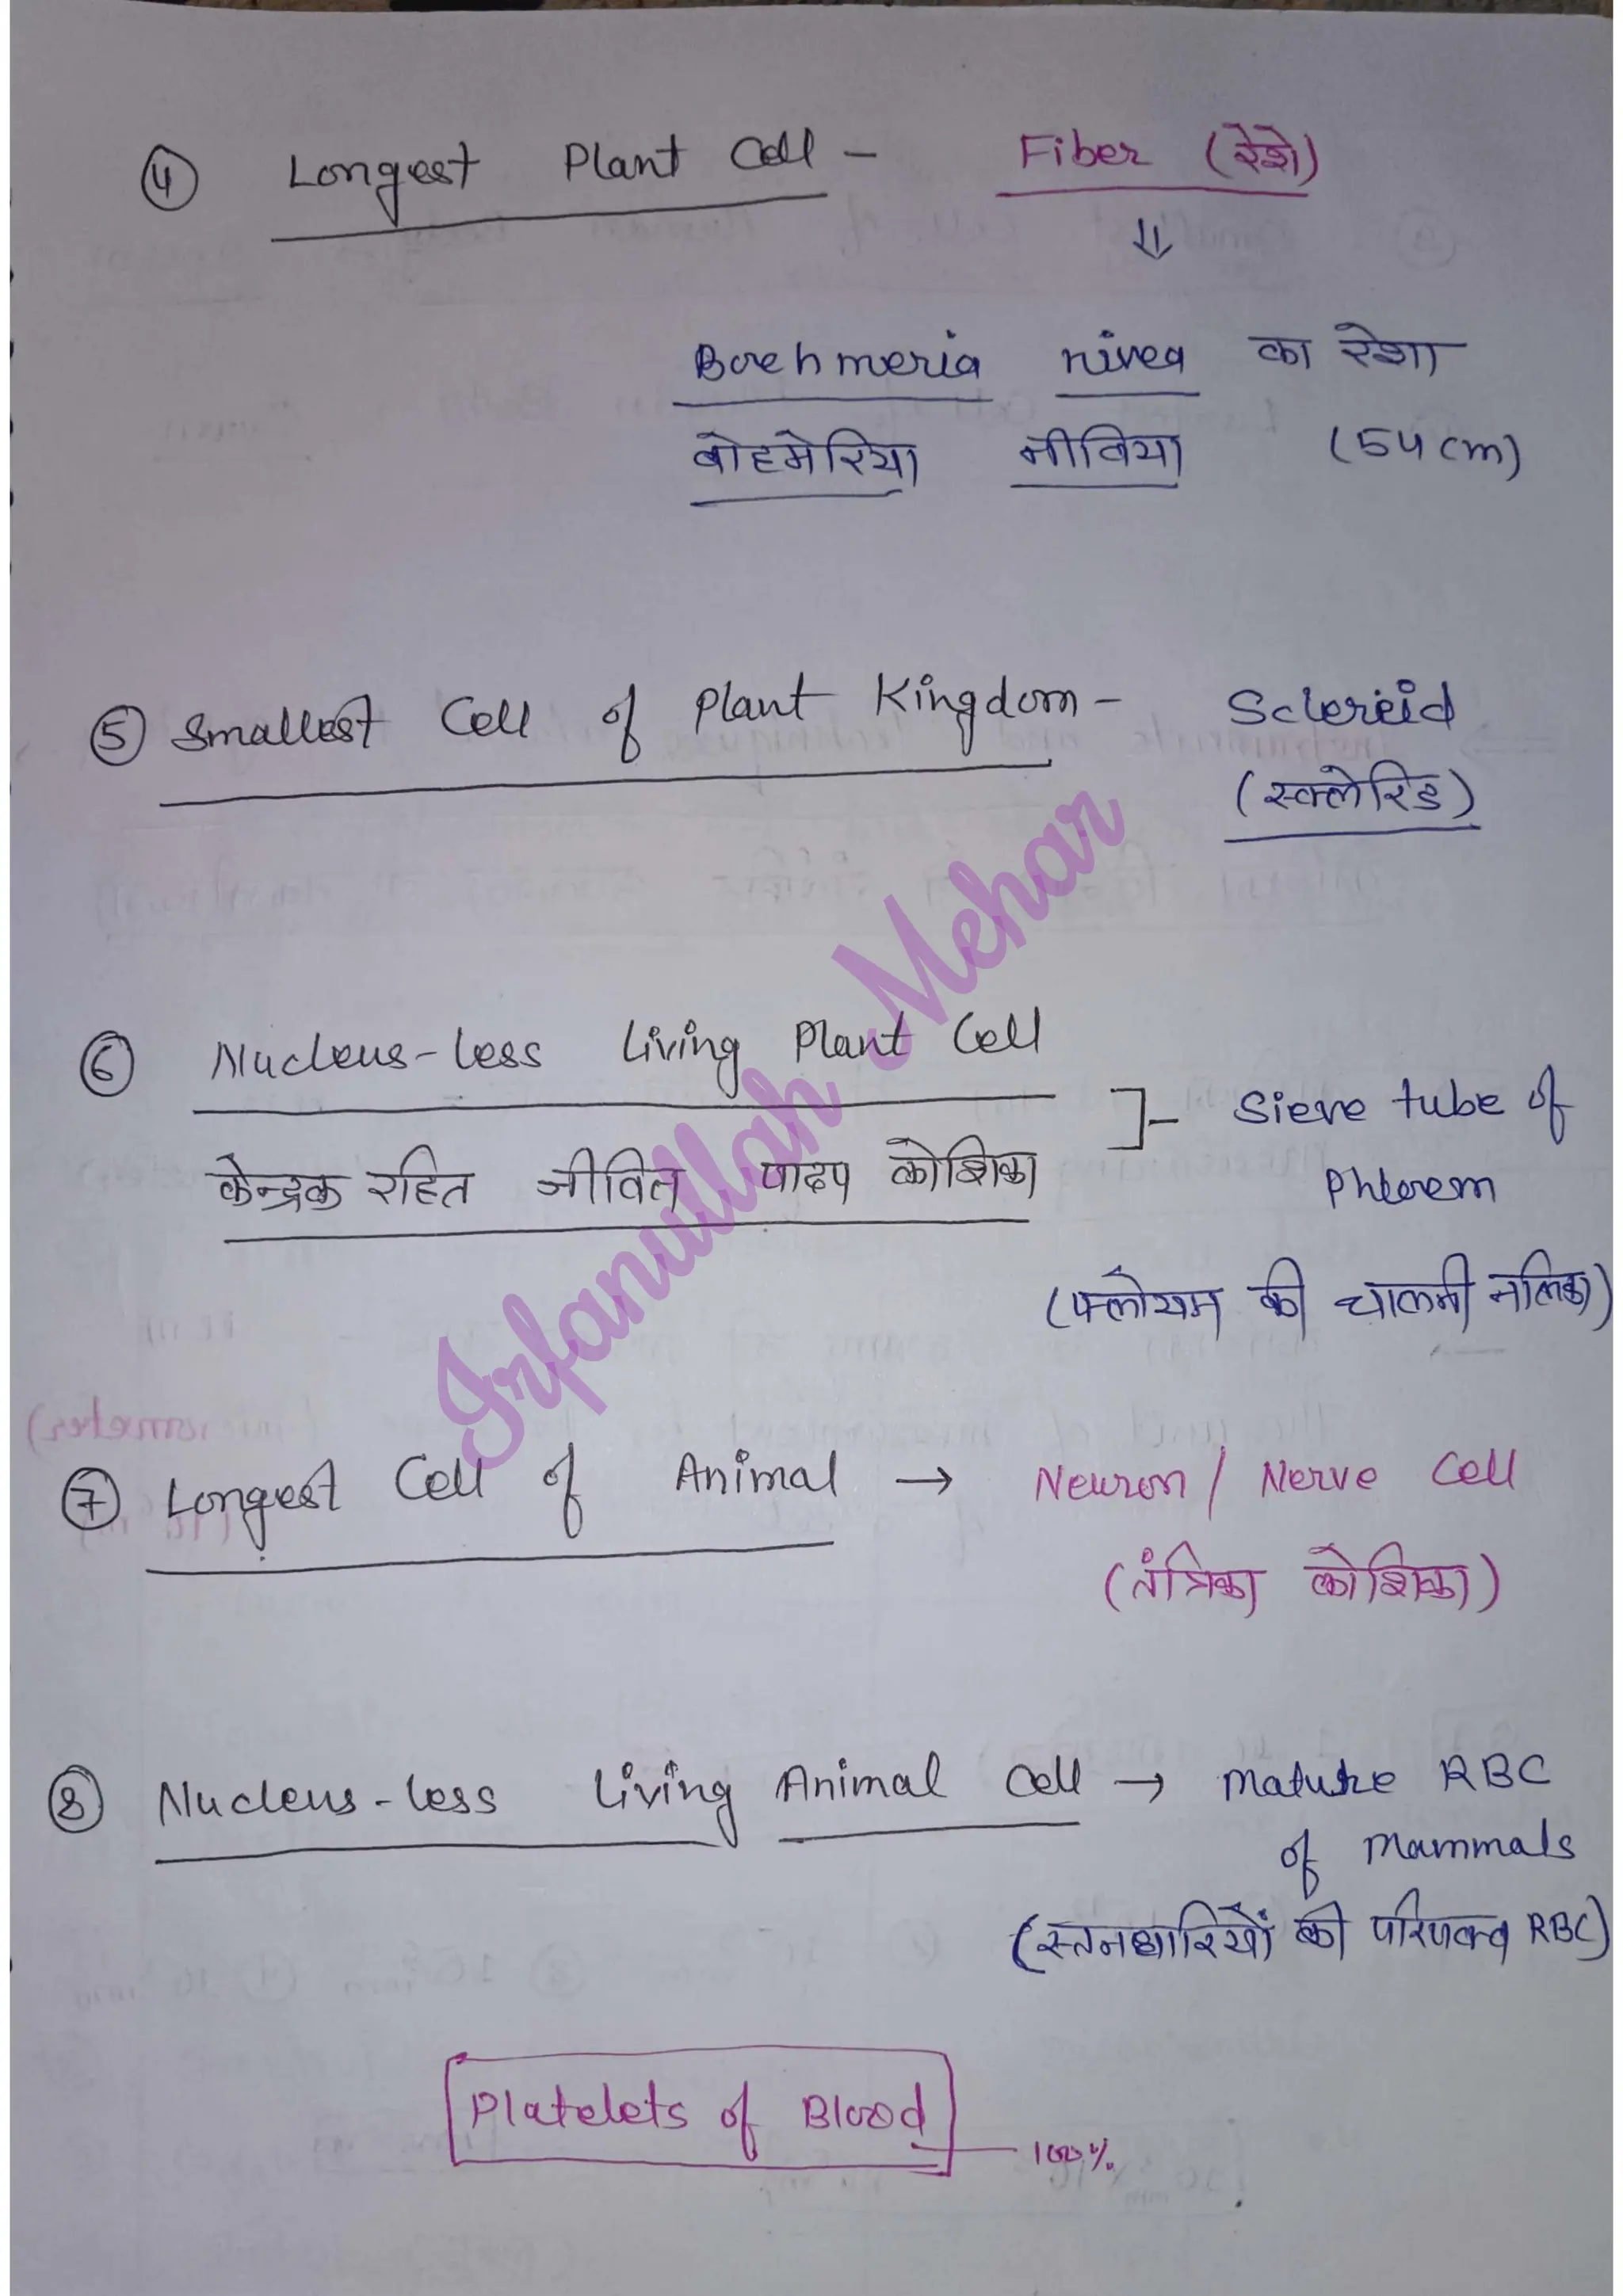 ④ Longest Plant Cell - Fiber (रेशे)
⇓
Boehmeria nivea का रेशा
बोहमेरिया नीविया (54 cm)
⑤ Smallest Cell of Plant Kingdom - Sclereid
(स्क्लेरिड)
⑥ Nucleus-less Living Plant Cell
केन्द्रक रहित जीवित पादप कोशिका ]- Sieve tube of
Phloem
(फ्लोयम की चालनी नलिका)
⑦ Longest Cell of Animal → Neuron / Nerve Cell
(तंत्रिका कोशिका)
⑧ Nucleus-less Living Animal Cell → Mature RBC
of Mammals
(स्तनधारियों की परिपक्व RBC)
Platelets of Blood — 100%
Irfanullah Mehar